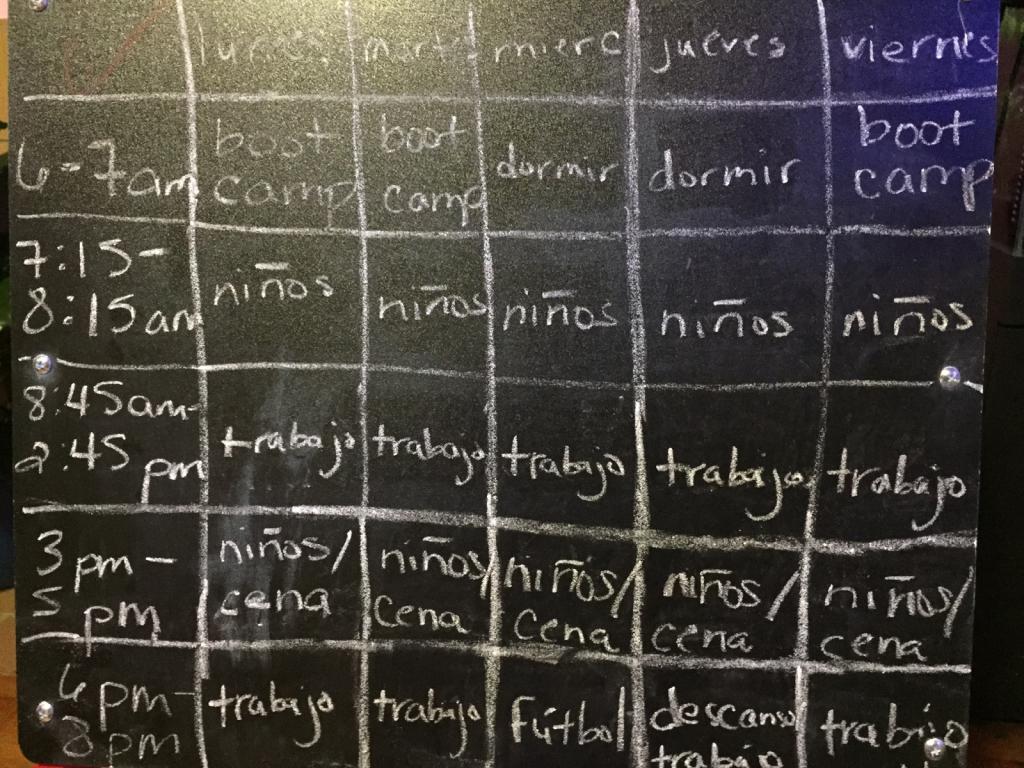 lunes martes mierc jueves viernes
6-7am boot camp boot camp dormir dormir boot camp
7:15-
8:15am niños niños niños niños niños
8:45am-
2:45 pm trabajo trabajo trabajo trabajo trabajo
3 pm - niños/ niños/ niños/ niños/ niños/
5 pm cena cena cena cena cena
6 pm- trabajo trabajo fútbol descanso trabajo
8pm trabajo